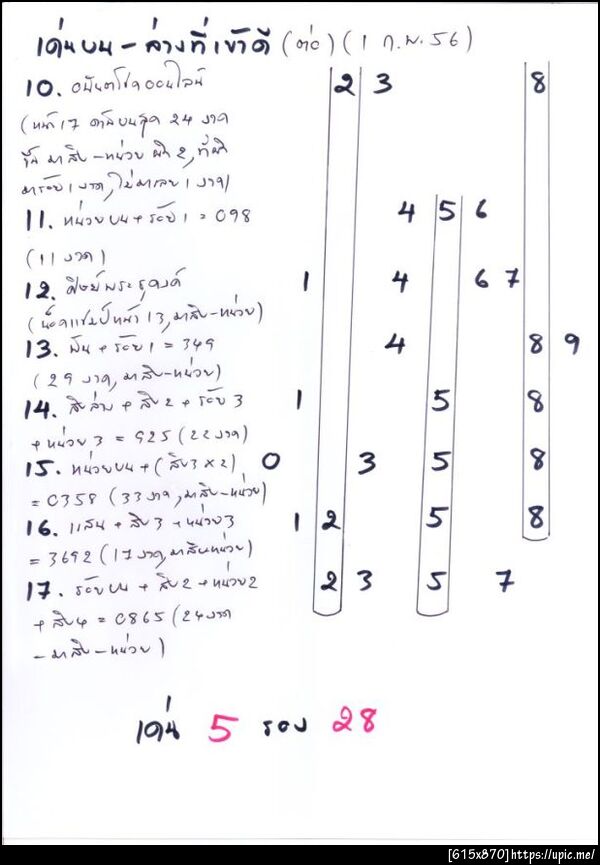 เด่นบน - ล่างที่เข้าดี (ต่อ) (1 ก.พ. 56)
10. อนันตโชคออนไลน์ 2 3 8
(หน้า 17 ดันบนสุด 24 งวด
มาสิบ - หน่วย ผิด 2, ที่ผิด
มาร้อย 1 งวด, ไม่มาเลย 1 งวด)
11. หน่วยบน + ร้อย 1 = 098 4 5 6
(11 งวด)
12. ศิษย์พระธุดงค์ 1 4 6 7
(น็อคแชมป์หน้า 13, มาสิบ - หน่วย)
13. พัน + ร้อย 1 = 349 4 8 9
(29 งวด, มาสิบ - หน่วย)
14. สิบล่าง + สิบ 2 + ร้อย 3 1 5 8
+ หน่วย 3 = 925 (22 งวด)
15. หน่วยบน + (สิบ 3 x 2) 0 3 5 8
= 0358 (33 งวด, มาสิบ - หน่วย)
16. แสน + สิบ 3 + หน่วย 3 1 2 5 8
= 3692 (17 งวด, มาสิบหน่วย)
17. ร้อยบน + สิบ 2 + หน่วย 2 2 3 5 7
+ สิบ 4 = 0865 (24 งวด
- มาสิบ - หน่วย)
เด่น 5 รอง 28
[615x870]https://upic.me/